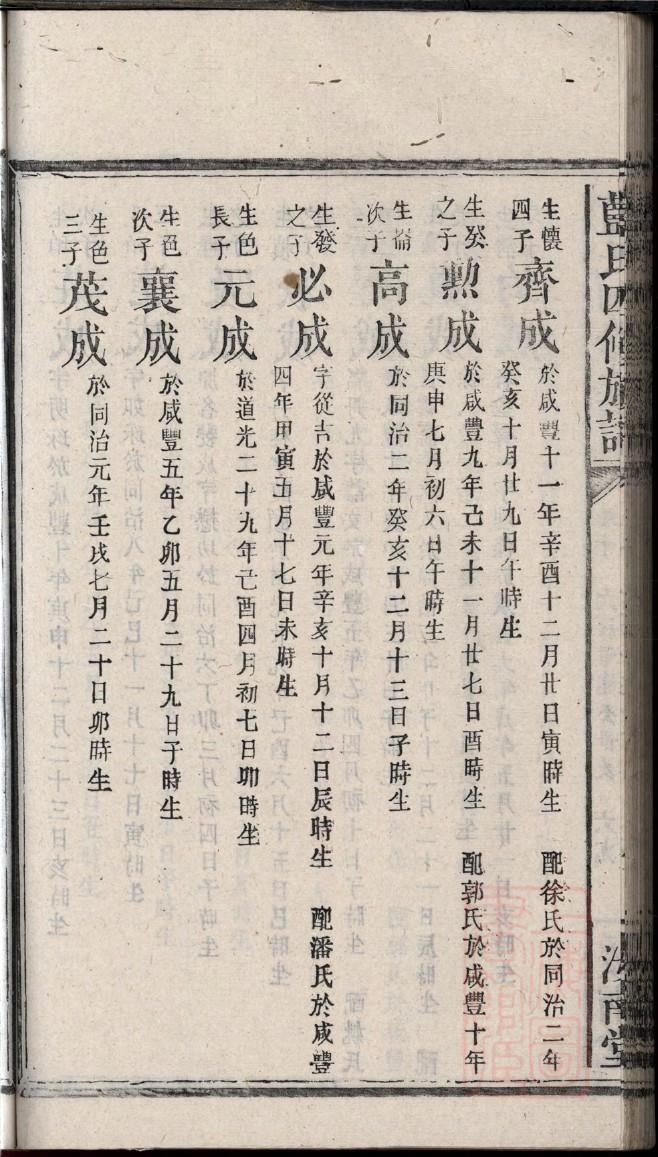 藍氏四修族譜
汝南堂
生懷
四子
齊成
於咸豐十一年辛酉十二月廿日寅時生 配徐氏於同治二年
癸亥十月廿九日午時生
生癸
之子
勲成
於咸豐九年己未十一月廿七日酉時生 配郭氏於咸豐十年
庚申七月初六日午時生
生崙
次子
高成
於同治二年癸亥十二月十三日子時生
生發
之子
必成
字從吉於咸豐元年辛亥十月十二日辰時生 配潘氏於咸豐
四年甲寅五月十七日未時生
生色
長子
元成
於道光二十九年己酉四月初七日卯時生
生色
次子
襄成
於咸豐五年乙卯五月二十九日子時生
生色
三子
茂成
於同治元年壬戌七月二十日卯時生